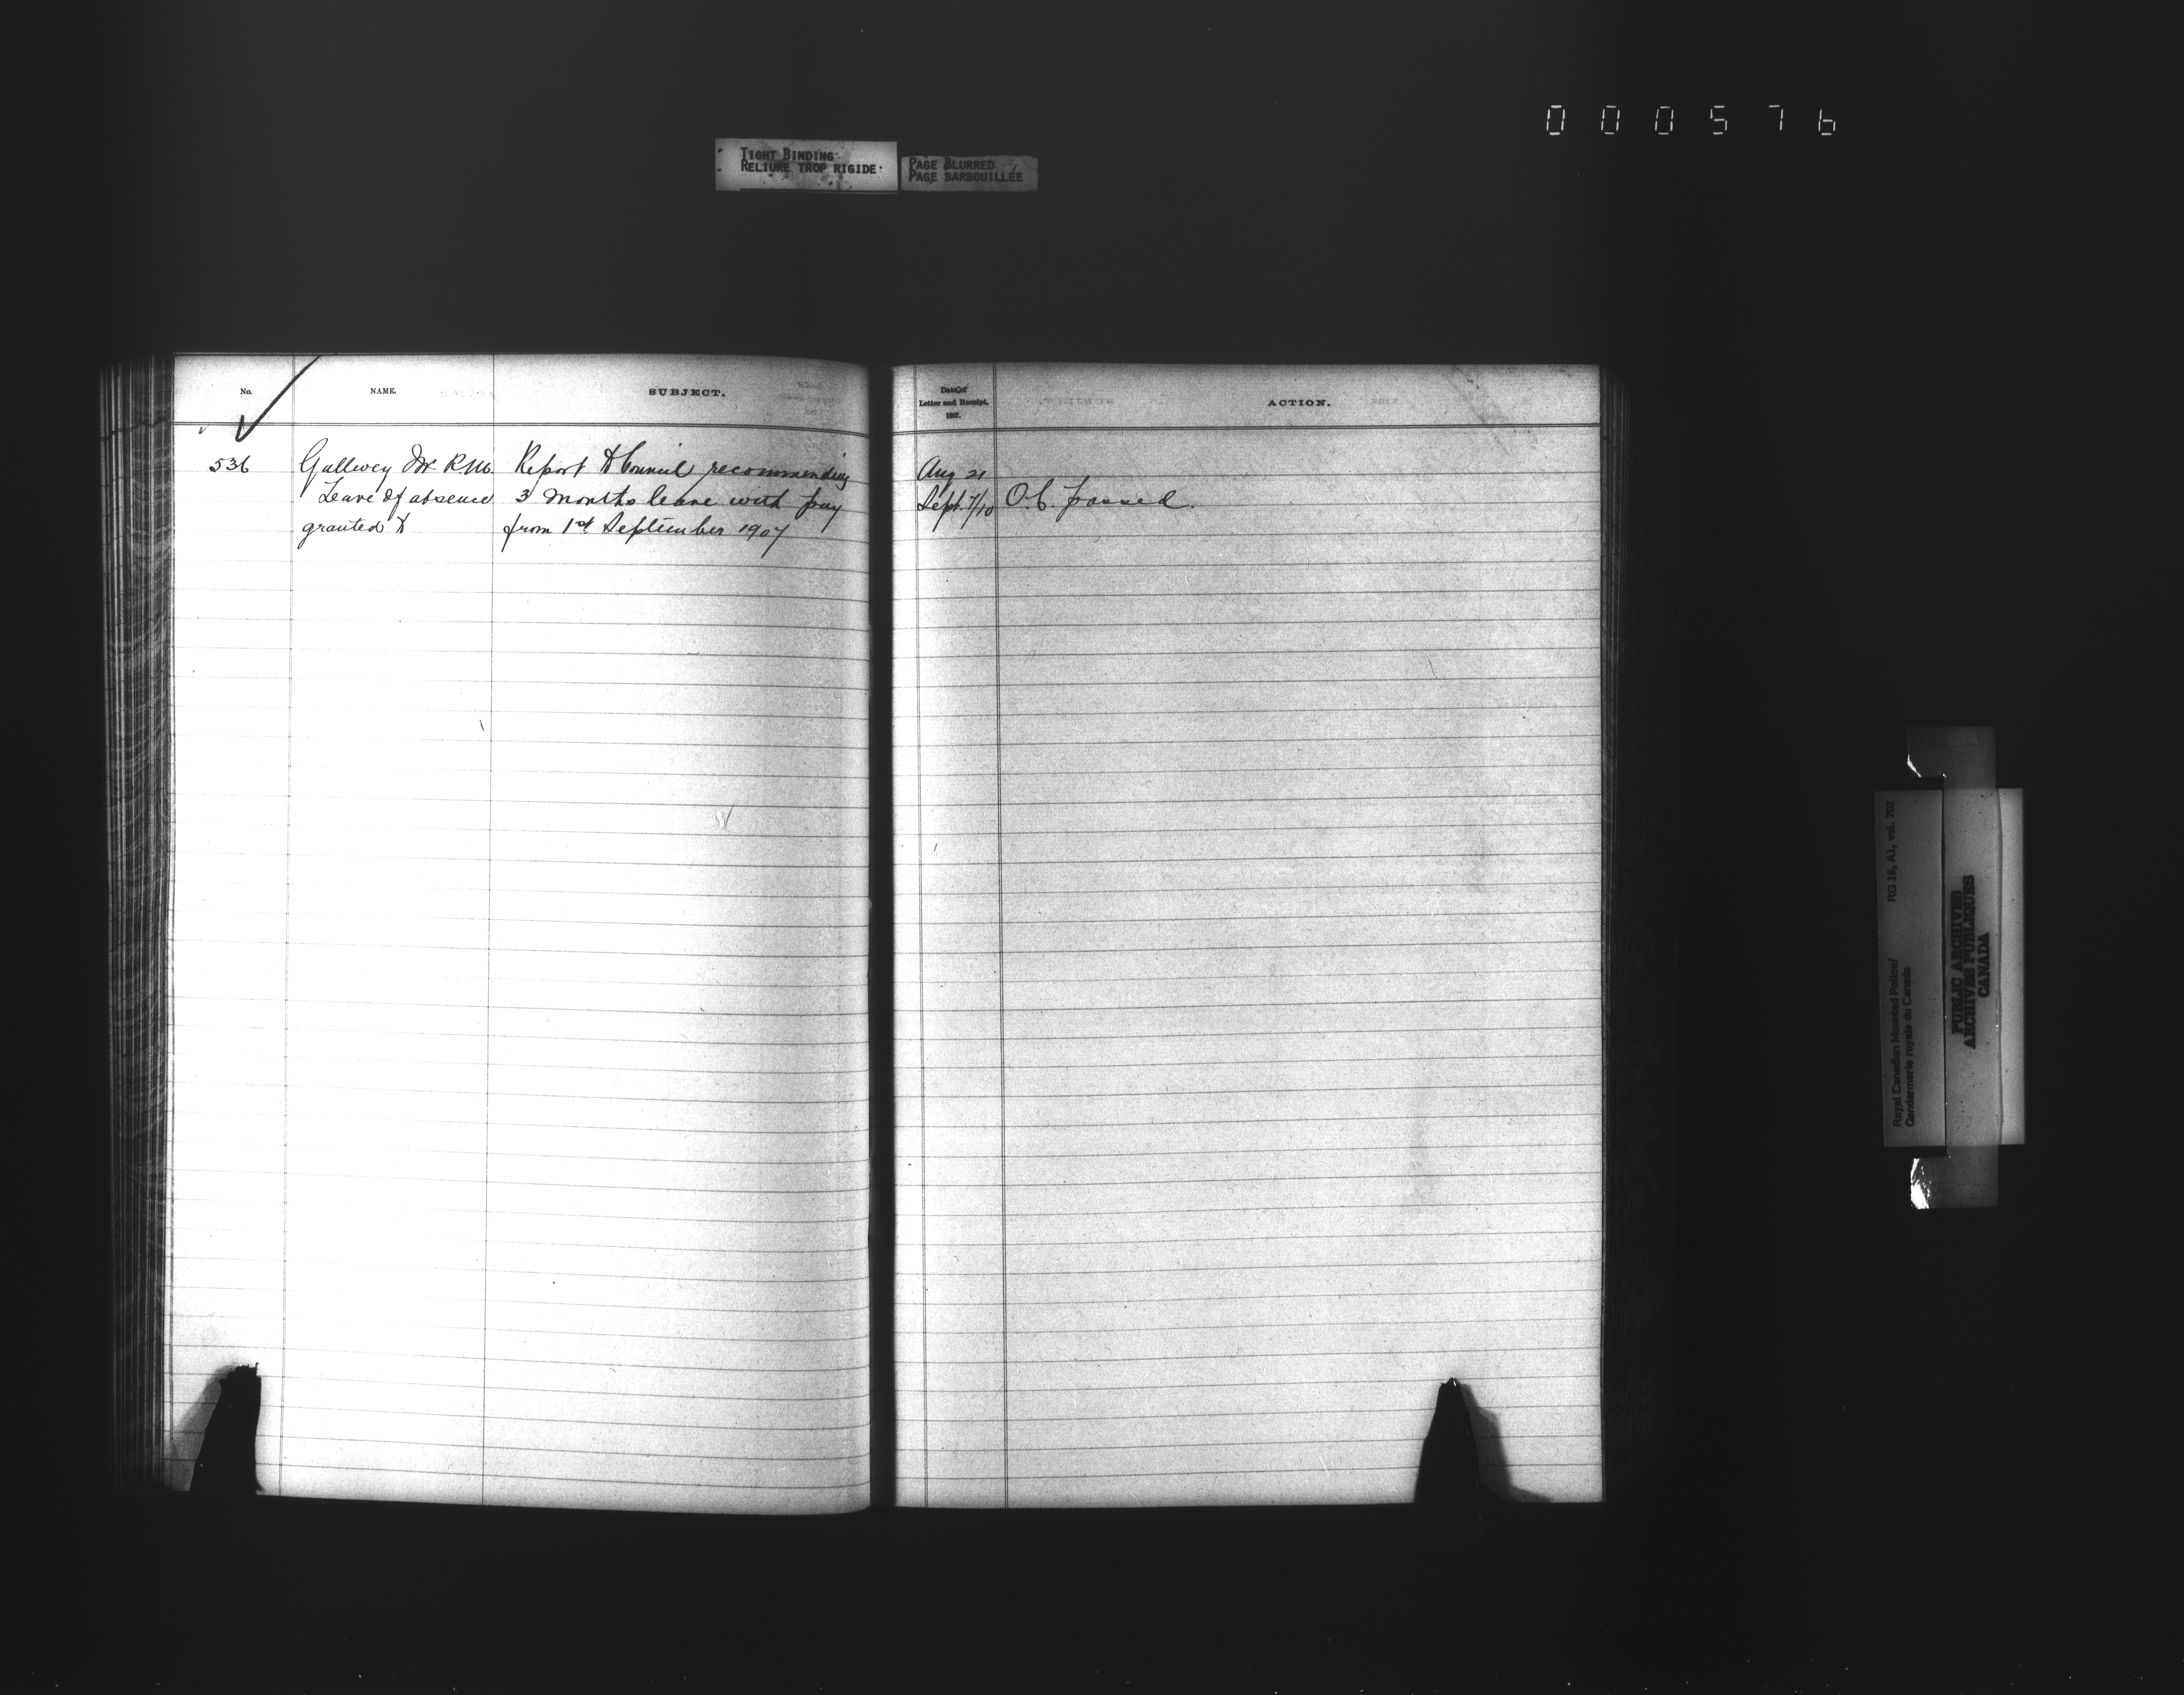 000576
TIGHT BINDING
RELIURE TROP RIGIDE
PAGE BLURRED
PAGE BARBOUILLÉE
No.
NAME.
SUBJECT.
Date of
Letter and Receipt,
1907.
ACTION.
536
Gallwey Mr R.M.
Leave of absence
granted to
Report to Council recommending
3 months leave with pay
from 1st September 1907
Aug 21
Sept. 7/10
O.C. passed.
Royal Canadian Mounted Police/
Gendarmerie royale du Canada
RG 18, A1, vol. 702
PUBLIC ARCHIVES
ARCHIVES PUBLIQUES
CANADA